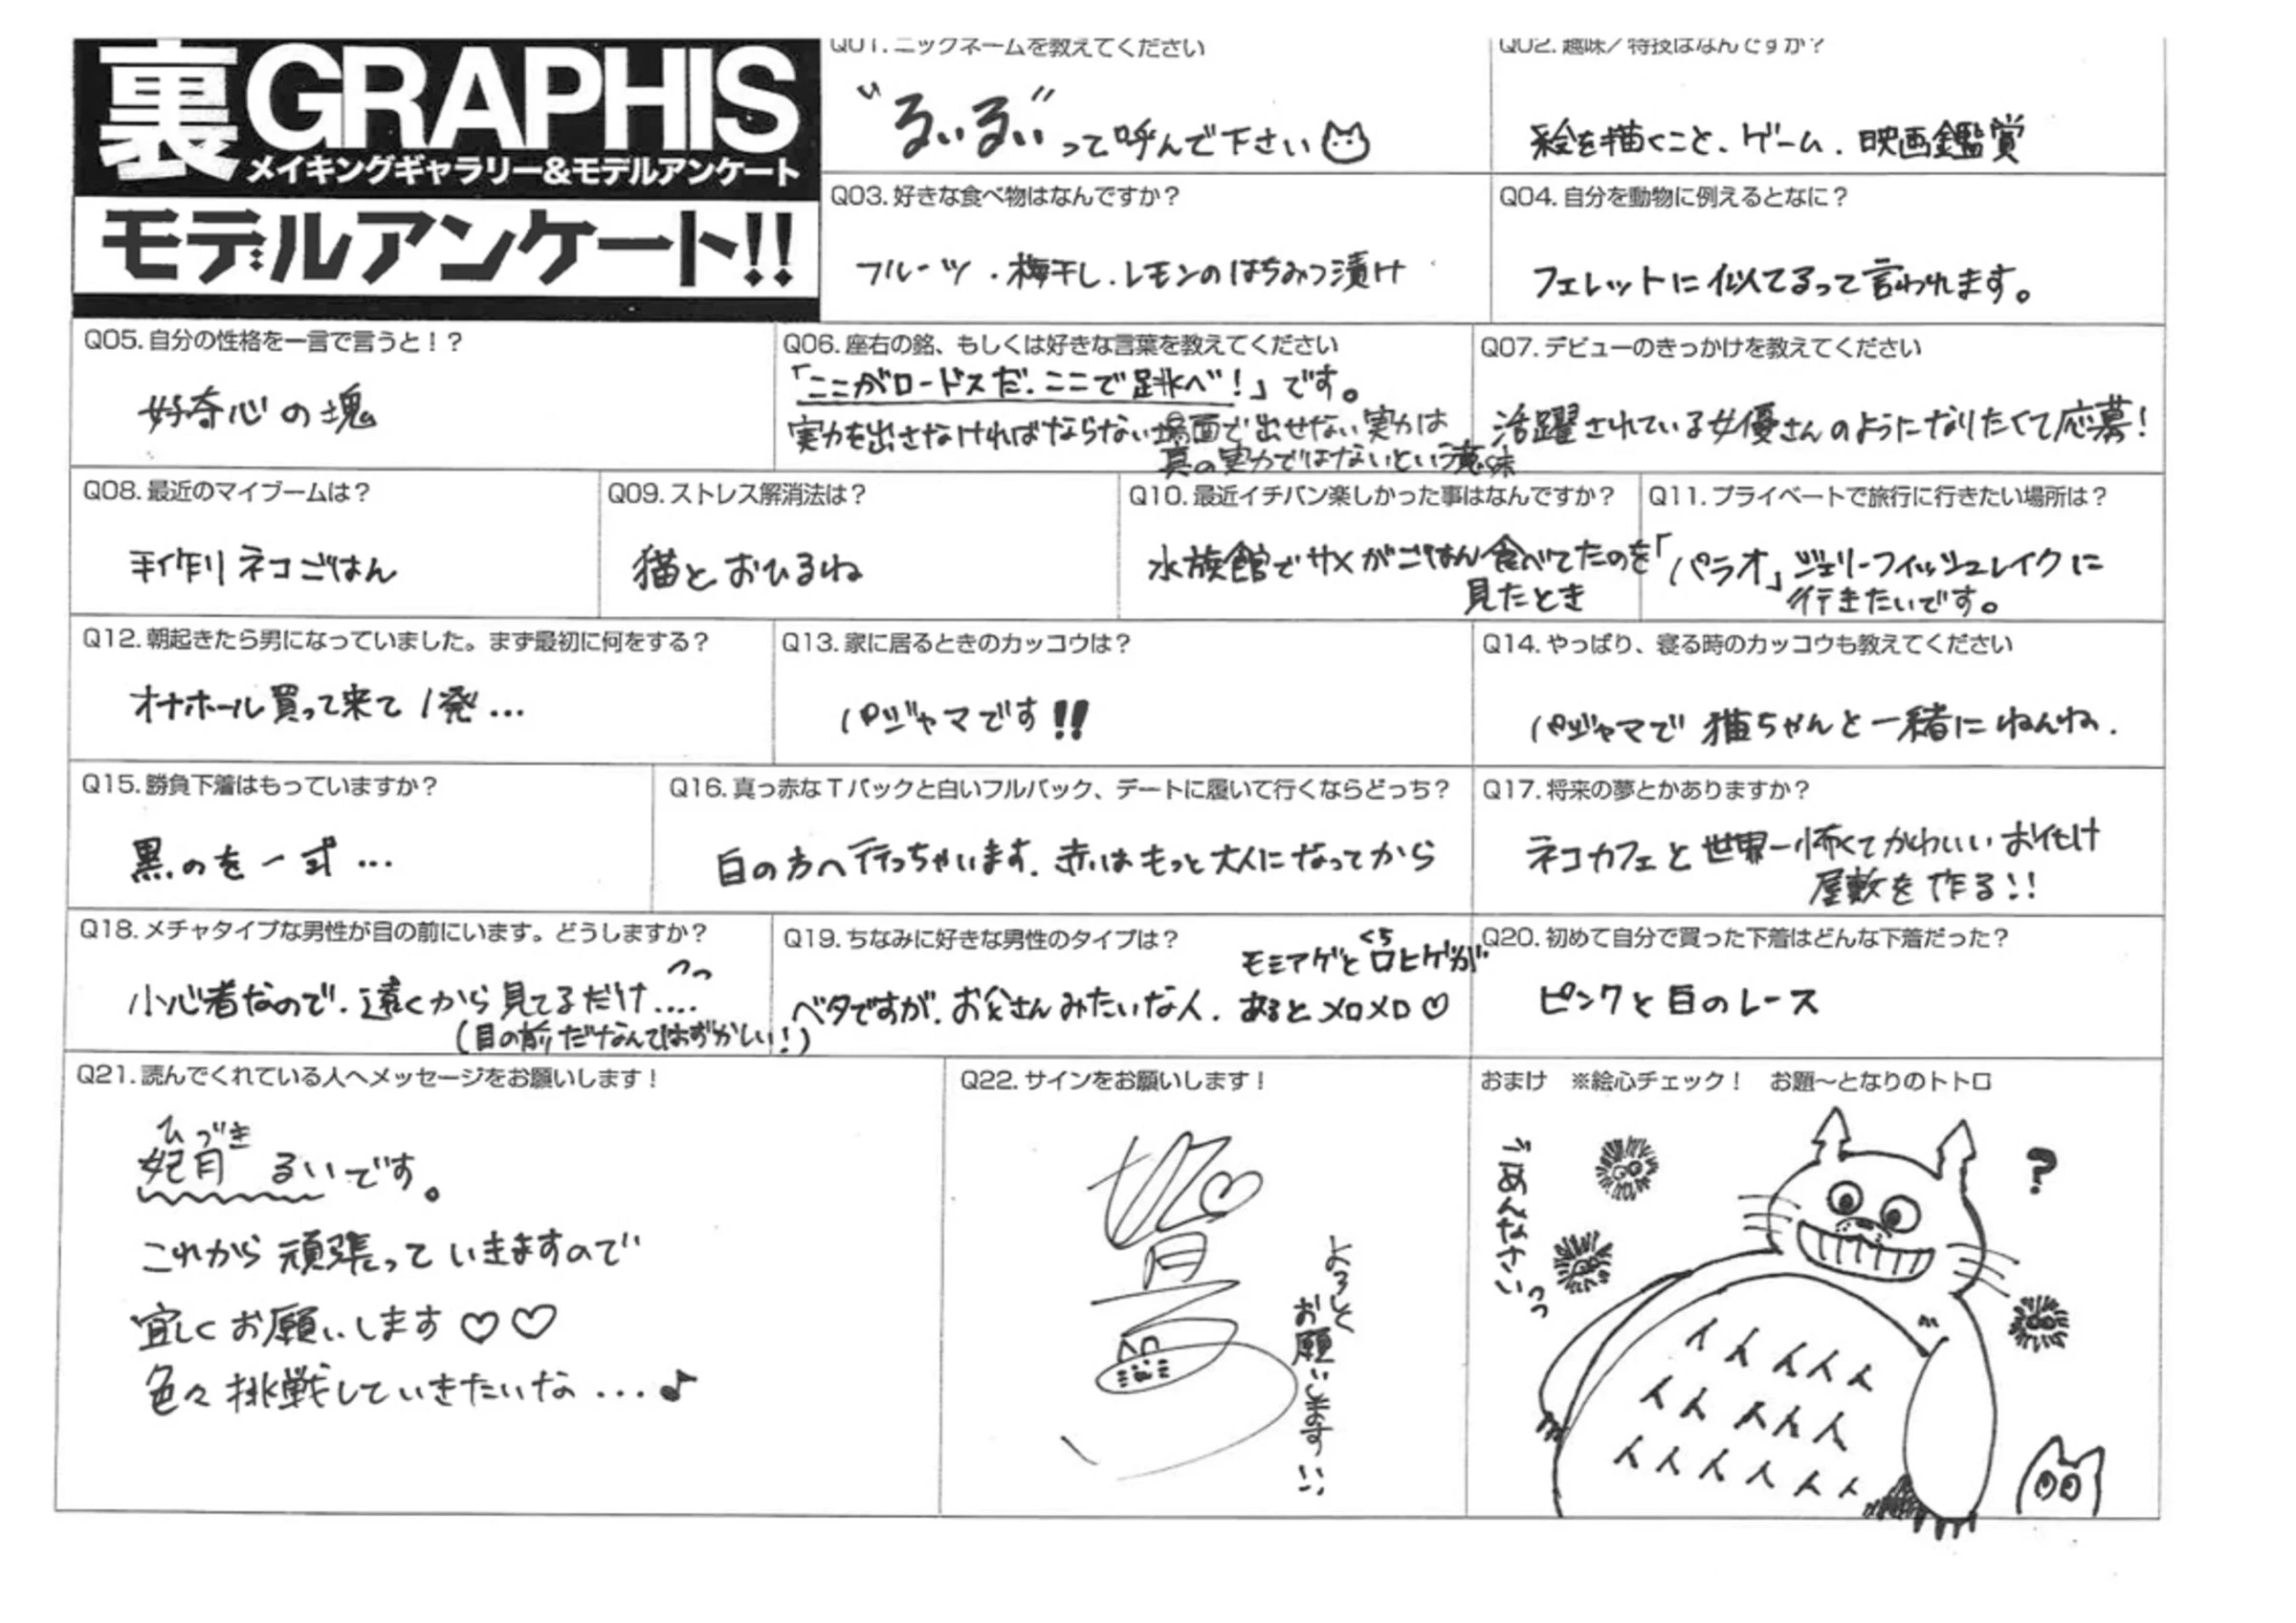 裏GRAPHIS
メイキングギャラリー&モデルアンケート
モデルアンケート!!
Q01.ニックネームを教えてください
"るいるい"って呼んで下さい
Q02.趣味／特技はなんですか？
絵を描くこと、ゲーム、映画鑑賞
Q03.好きな食べ物はなんですか？
フルーツ・梅干し.レモンのはちみつ漬け
Q04.自分を動物に例えるとなに？
フェレットに似てるって言われます。
Q05.自分の性格を一言で言うと！？
好奇心の塊
Q06.座右の銘、もしくは好きな言葉を教えてください
「ここがロードスだ.ここで跳べ！」です。
実力を出さなければならない場面で出せない実力は
真の実力ではないという意味
Q07.デビューのきっかけを教えてください
活躍されている女優さんのようになりたくて応募！
Q08.最近のマイブームは？
手作りネコごはん
Q09.ストレス解消法は？
猫とおひるね
Q10.最近イチバン楽しかった事はなんですか？
水族館でサメがごはん食べてたのを
見たとき
Q11.プライベートで旅行に行きたい場所は？
「パラオ」ジェリーフィッシュレイクに
行きたいです。
Q12.朝起きたら男になっていました。まず最初に何をする？
オナホール買って来て1発...
Q13.家に居るときのカッコウは？
パジャマです!!
Q14.やっぱり、寝る時のカッコウも教えてください
パジャマで猫ちゃんと一緒にねんね.
Q15.勝負下着はもっていますか？
黒のを一式...
Q16.真っ赤なTバックと白いフルバック、デートに履いて行くならどっち？
白の方へ行っちゃいます.赤はもっと大人になってから
Q17.将来の夢とかありますか？
ネコカフェと世界一怖くてかわいいお化け
屋敷を作る!!
Q18.メチャタイプな男性が目の前にいます。どうしますか？
小心者なので.遠くから見てるだけ....っっ
(目の前だなんてはずかしい！)
Q19.ちなみに好きな男性のタイプは？
ベタですが.お父さんみたいな人.
くち
モミアゲと口ヒゲが
あるとメロメロ♡
Q20.初めて自分で買った下着はどんな下着だった？
ピンクと白のレース
Q21.読んでくれている人へメッセージをお願いします！
ひづき
妃月 るいです。
これから頑張っていきますので
宜しくお願いします♡♡
色々挑戦していきたいな...♪
Q22.サインをお願いします！
妃月
よろしく
お願いします!!
おまけ ※絵心チェック！ お題～となりのトトロ
ごめんなさいっっ
?